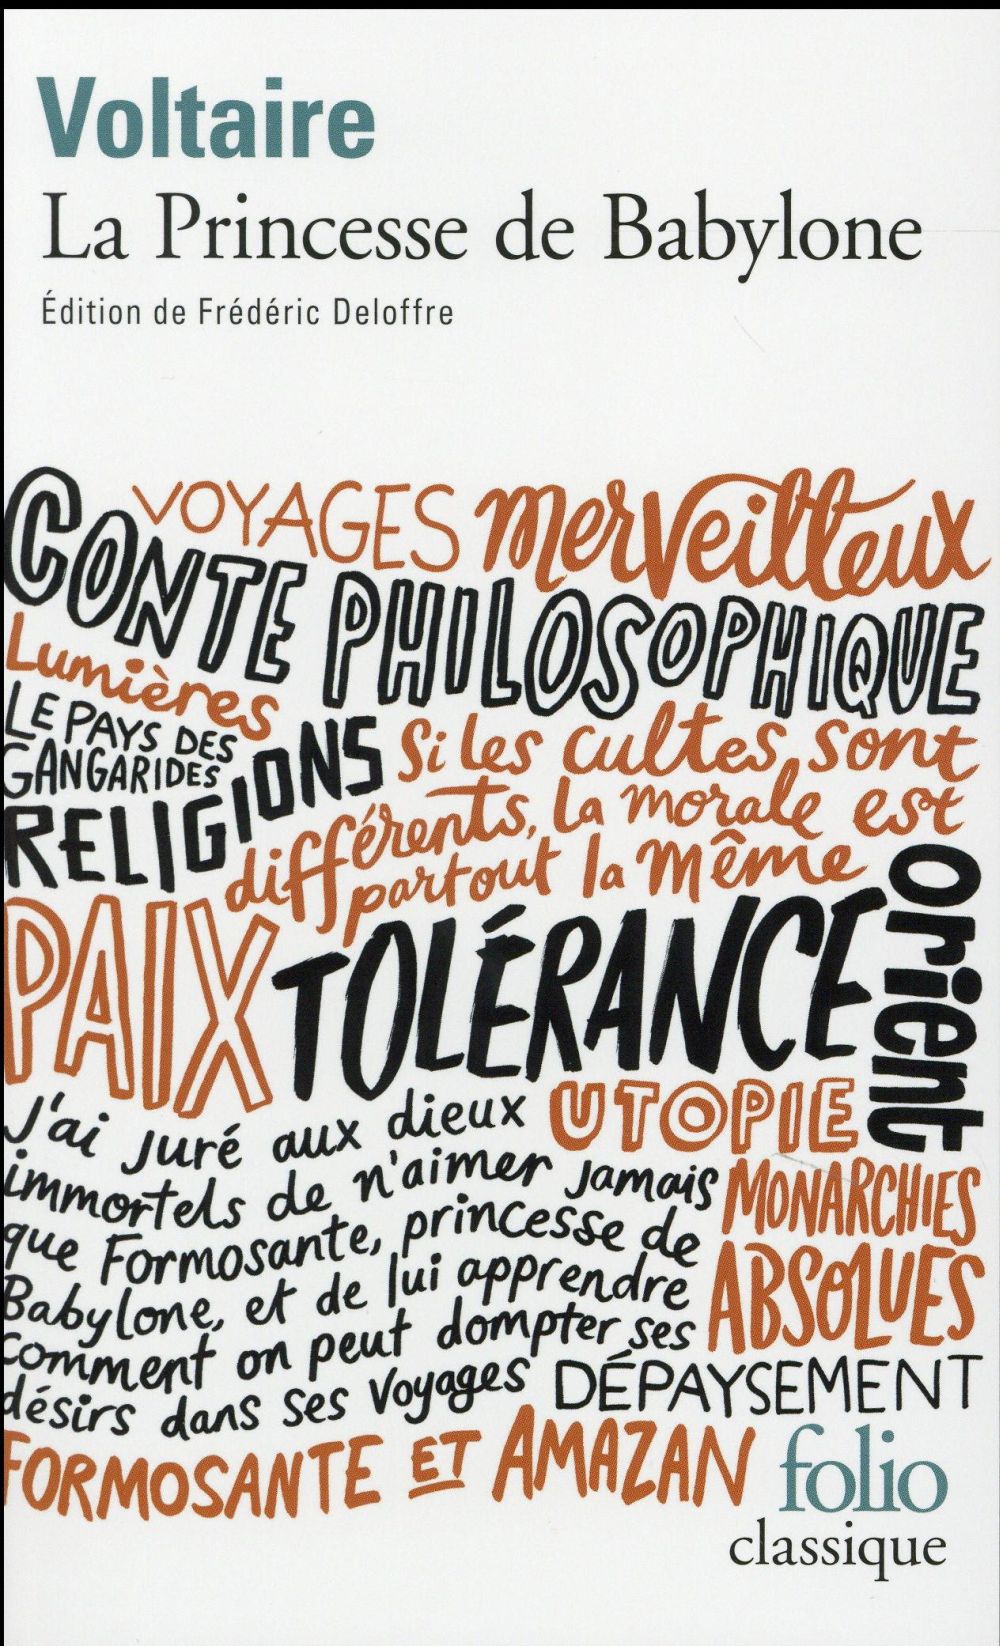 Voltaire
La Princesse de Babylone
Édition de Frédéric Deloffre
VOYAGES merveilleux
CONTE PHILOSOPHIQUE
Lumières
LE PAYS DES
GANGARIDES
RELIGIONS
Si les cultes sont
différents, la morale est
partout la même
orient
PAIX TOLÉRANCE
UTOPIE
J'ai juré aux dieux
immortels de n'aimer jamais
que Formosante, princesse de
Babylone, et de lui apprendre
comment on peut dompter ses
désirs dans ses voyages
MONARCHIES
ABSOLUES
DÉPAYSEMENT
FORMOSANTE ET AMAZAN
folio
classique